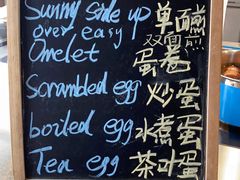 Sunny side up 单面煎
over easy 双面煎
Omelet 蛋卷
Scrambled egg 炒蛋
boiled egg 水煮蛋
Tea egg 茶叶蛋